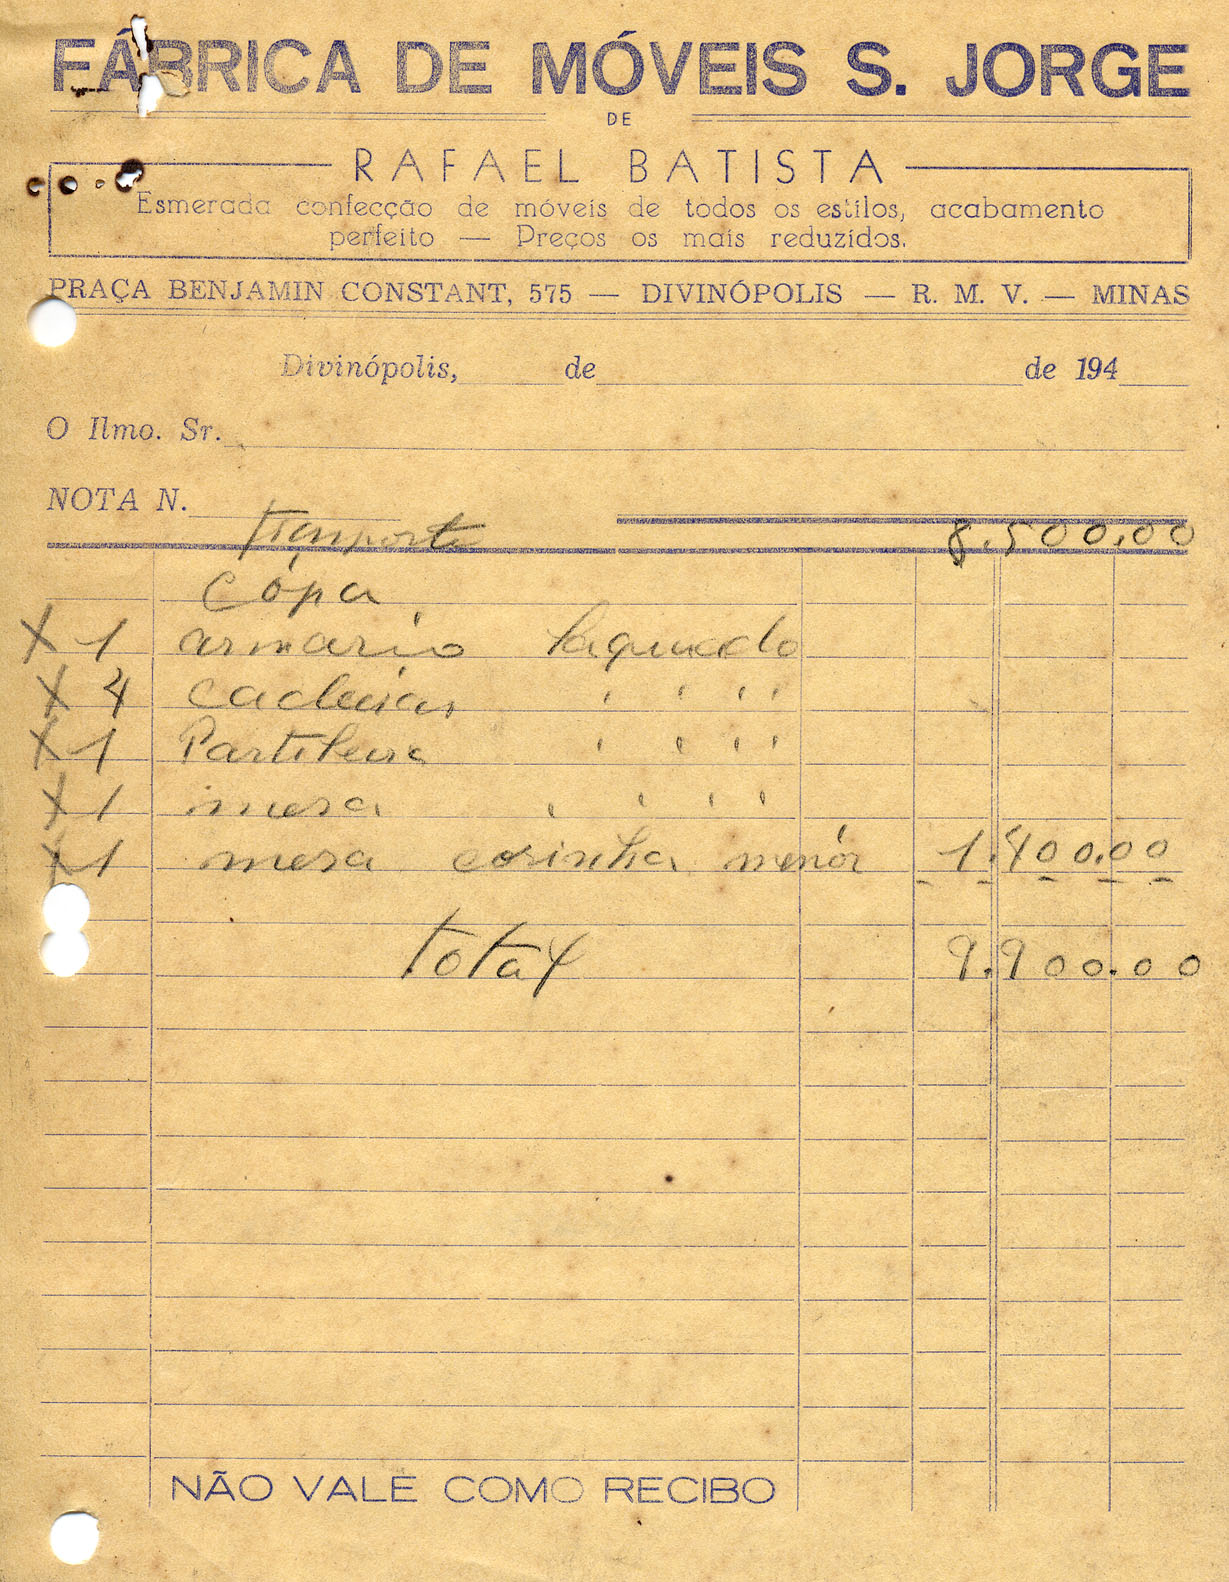 FÁBRICA DE MÓVEIS S. JORGE
DE
RAFAEL BATISTA
Esmerada confecção de móveis de todos os estilos, acabamento
perfeito — Preços os mais reduzidos.
PRAÇA BENJAMIN CONSTANT, 575 — DIVINÓPOLIS — R. M. V. — MINAS
Divinópolis, de de 194
O Ilmo. Sr.
NOTA N.
Transporte 8.500.00
Cópa
X 1 armario laqueado
X 4 cadeiras " " " "
X 1 Partileira " " " "
X 1 mesa " " " "
X 1 mesa cosinha menór 1.400.00
total 9.900.00
NÃO VALE COMO RECIBO